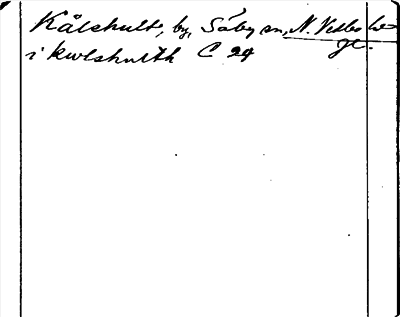 Kålshult, by, Säby sn, N. Vedbo hd
i kwlshulth C 29 gl.